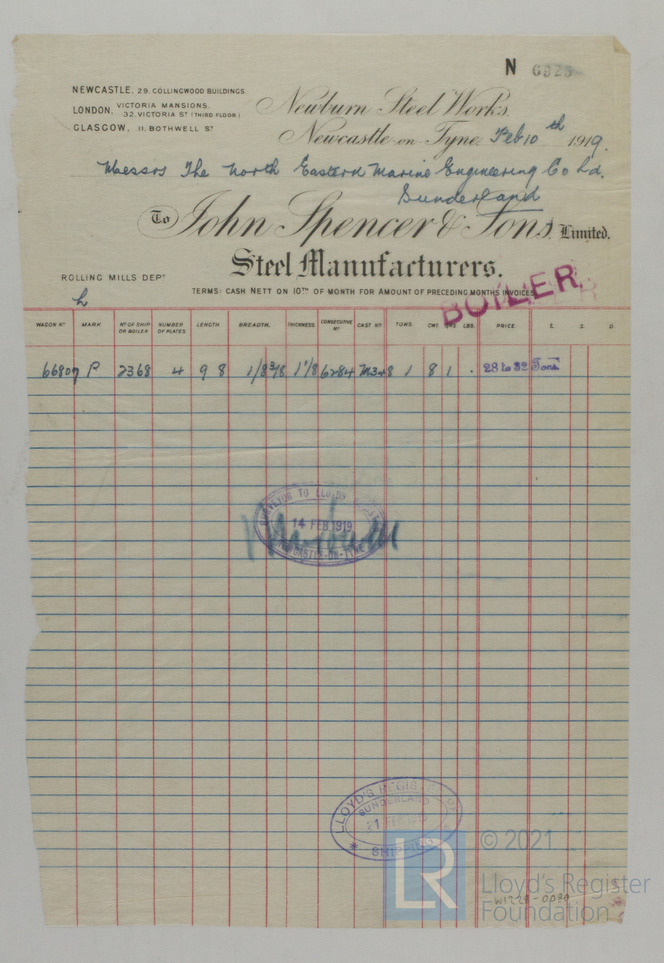 N 6925
NEWCASTLE, 29, COLLINGWOOD BUILDINGS.
LONDON, VICTORIA MANSIONS,
32, VICTORIA ST (THIRD FLOOR)
GLASGOW, 11, BOTHWELL ST
Newburn Steel Works,
Newcastle-on-Tyne, Feb 10th 1919.
Messrs The North Eastern Marine Engineering Co Ld.
Sunderland
To John Spencer & Sons, Limited,
Steel Manufacturers.
ROLLING MILLS DEPT
TERMS: CASH NETT ON 10TH OF MONTH FOR AMOUNT OF PRECEDING MONTHS INVOICES
BOILER
WAGON NO MARK NO OF SHIP OR BOILER NUMBER OF PLATES LENGTH BREADTH. THICKNESS CONSECUTIVE NO CAST NO TONS. CWT. QRS LBS. PRICE. £. S. D.
66807 P 2368 4 9 8 1/8 3/8 1 1/8 6284 7M348 1 8 1 . 28 to 32 Tons
SURVEYOR TO LLOYD'S REGISTER
14 FEB 1919
NEWCASTLE-ON-TYNE
LLOYD'S REGISTER OF
SUNDERLAND
21 FEB 1919
SHIPPING
LR
© 2021
Lloyd's Register
Foundation
W1228-0080